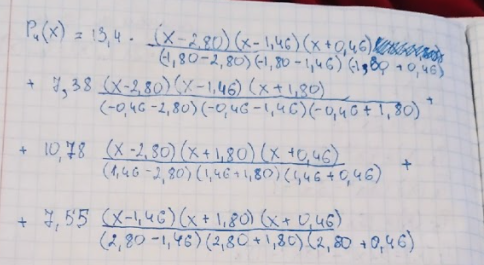 P₄(x) = 13,4 · (x-2,80)(x-1,46)(x+0,46)
(-1,80-2,80)(-1,80-1,46)(-1,80+0,46)
+ 7,38 (x-2,80)(x-1,46)(x+1,80) +
(-0,46-2,80)(-0,46-1,46)(-0,46+1,80)
+ 10,78 (x-2,80)(x+1,80)(x+0,46) +
(1,46-2,80)(1,46+1,80)(1,46+0,46)
+ 7,55 (x-1,46)(x+1,80)(x+0,46)
(2,80-1,46)(2,80+1,80)(2,80+0,46)